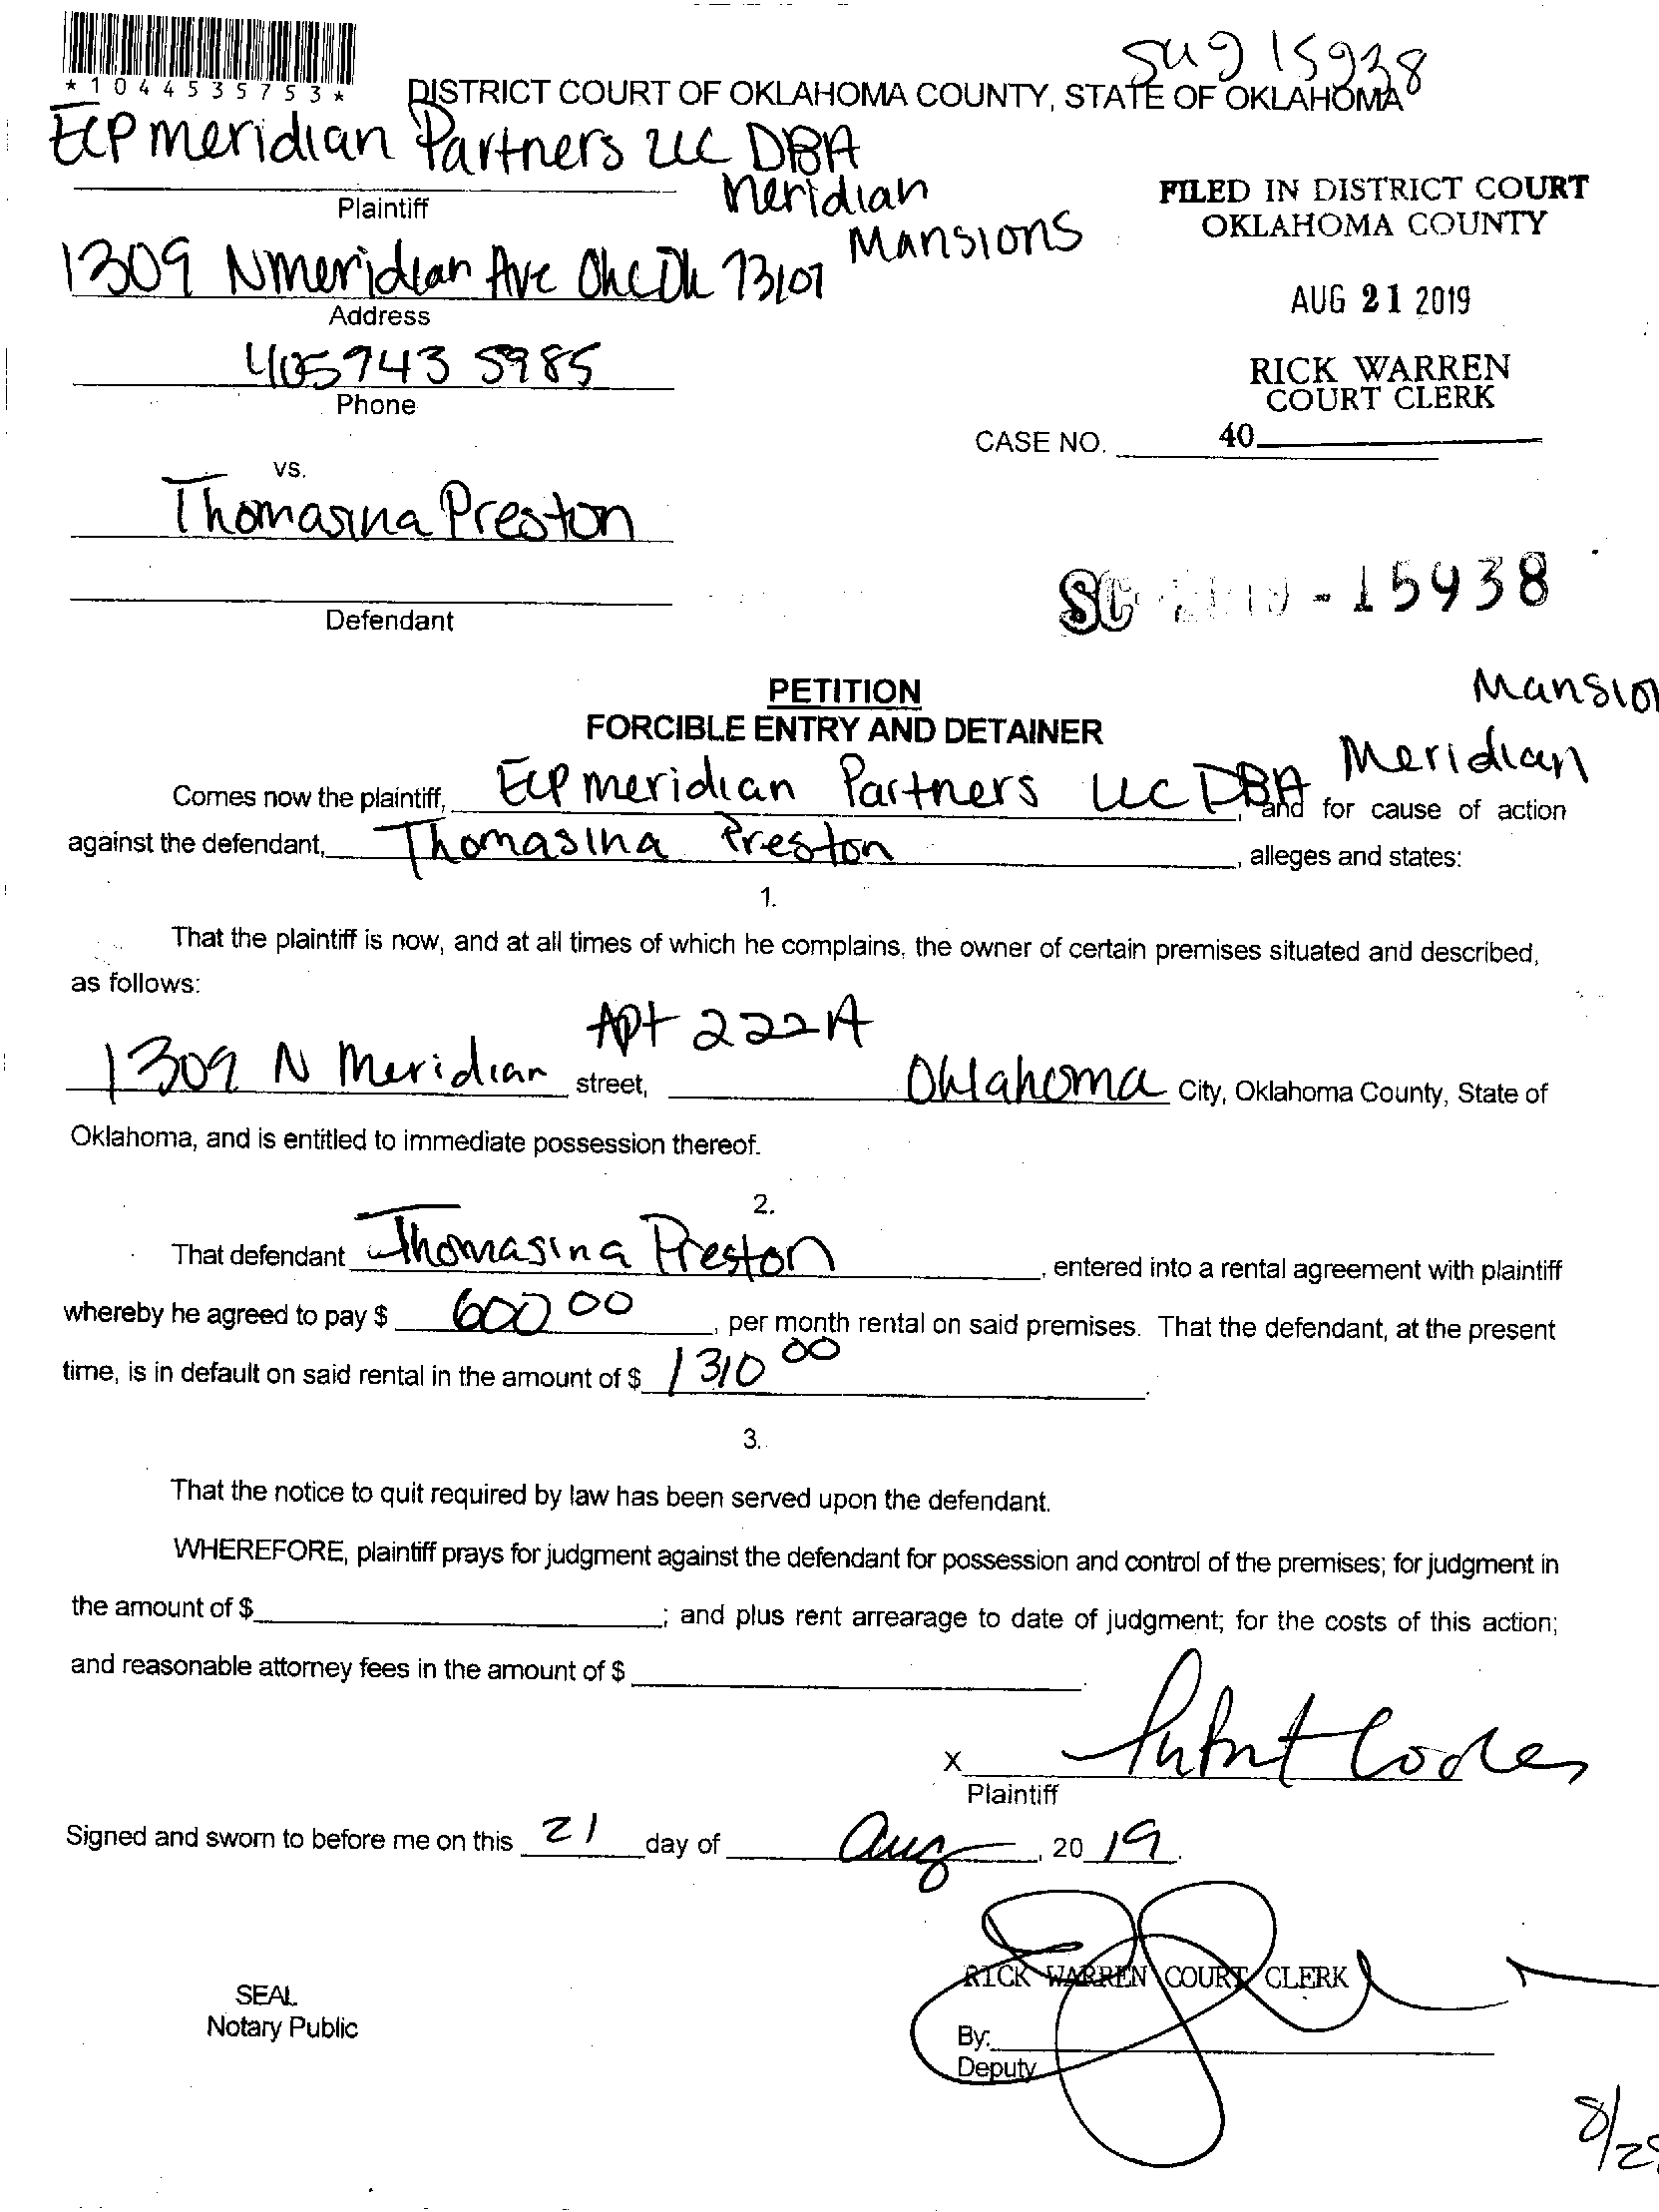 *1044535753*
15938
DISTRICT COURT OF OKLAHOMA COUNTY, STATE OF OKLAHOMA
ECP meridian Partners LLC DBA
Meridian
Mansions
Plaintiff
FILED IN DISTRICT COURT
OKLAHOMA COUNTY
1309 N meridian Ave OKC Ok 73107
Address
AUG 21 2019
405 943 5985
Phone
RICK WARREN
COURT CLERK
CASE NO.
40
vs.
Thomasina Preston
Defendant
SC - 2019 - 15938
PETITION
FORCIBLE ENTRY AND DETAINER
Mansion
Meridian
Comes now the plaintiff, ECP meridian Partners LLC DBA, and for cause of action
against the defendant, Thomasina Preston, alleges and states:
1.
That the plaintiff is now, and at all times of which he complains, the owner of certain premises situated and described,
as follows:
Apt 222A
1309 N Meridian street, Oklahoma City, Oklahoma County, State of
Oklahoma, and is entitled to immediate possession thereof.
2.
That defendant Thomasina Preston, entered into a rental agreement with plaintiff
whereby he agreed to pay $ 600 00, per month rental on said premises. That the defendant, at the present
time, is in default on said rental in the amount of $ 1310 00.
3.
That the notice to quit required by law has been served upon the defendant.
WHEREFORE, plaintiff prays for judgment against the defendant for possession and control of the premises; for judgment in
the amount of $ ; and plus rent arrearage to date of judgment; for the costs of this action;
and reasonable attorney fees in the amount of $
X
Plaintiff
Signed and sworn to before me on this 21 day of Aug, 20 19.
RICK WARREN COURT CLERK
SEAL
Notary Public
By:
Deputy